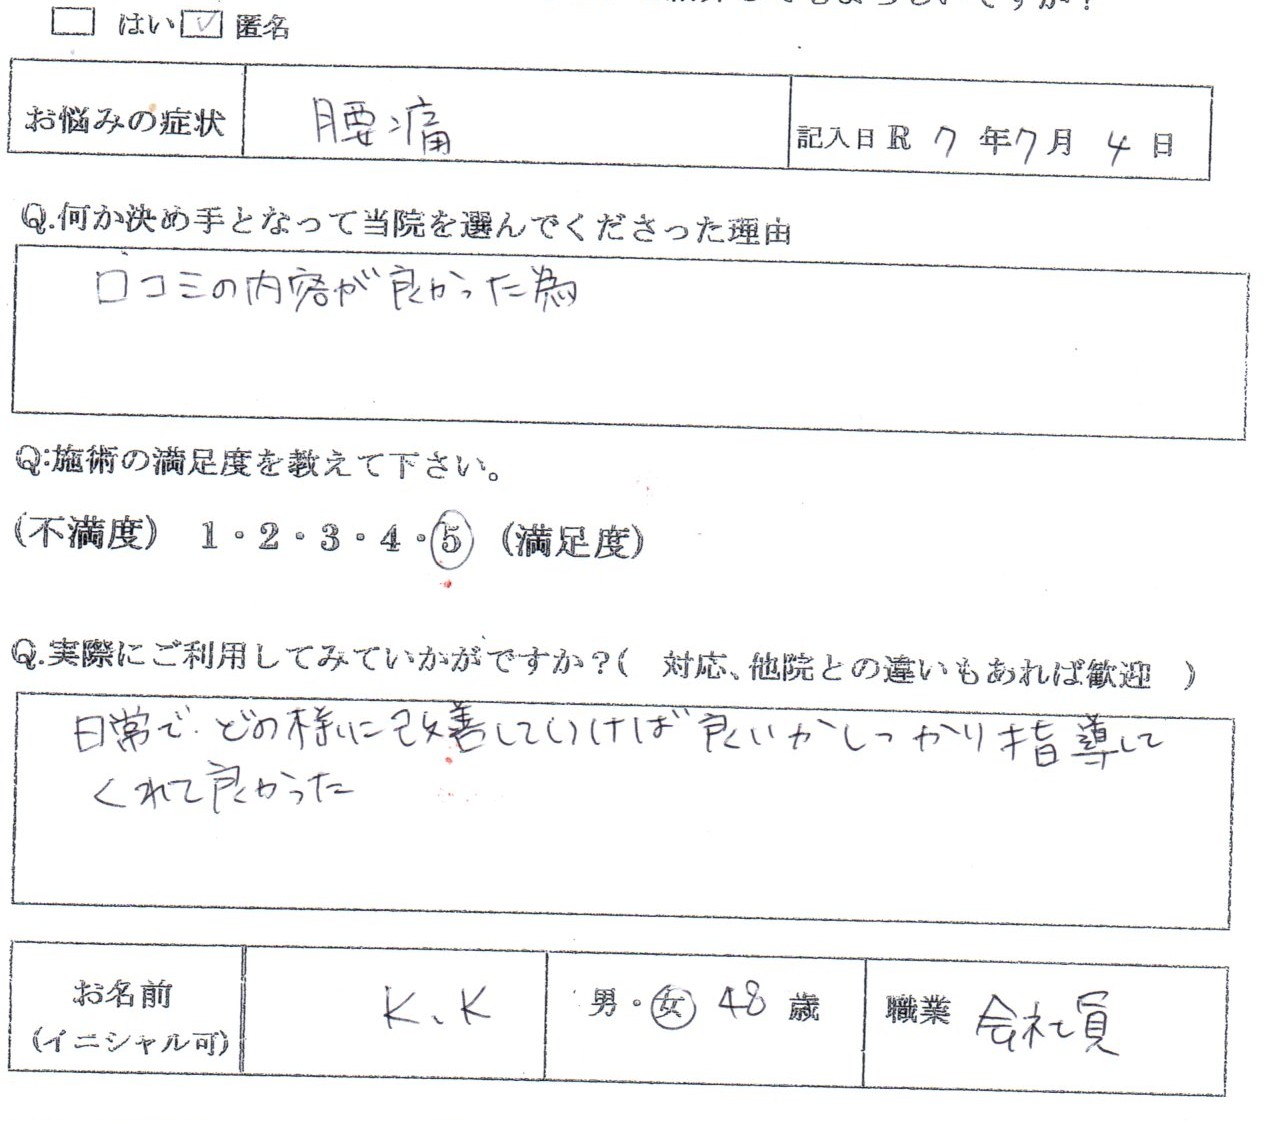 してもよろしいですか？
□ はい ☑ 匿名
お悩みの症状 腰痛 記入日 R 7 年 7 月 4 日
Q.何か決め手となって当院を選んでくださった理由
口コミの内容が良かった為
Q:施術の満足度を教えて下さい。
(不満度) 1・2・3・4・5 (満足度)
Q.実際にご利用してみていかがですか？( 対応、他院との違いもあれば歓迎 )
日常で どの様に改善していけば良いかしっかり指導して
くれて良かった
お名前 K、K 男・女 48 歳 職業 会社員
(イニシャル可)